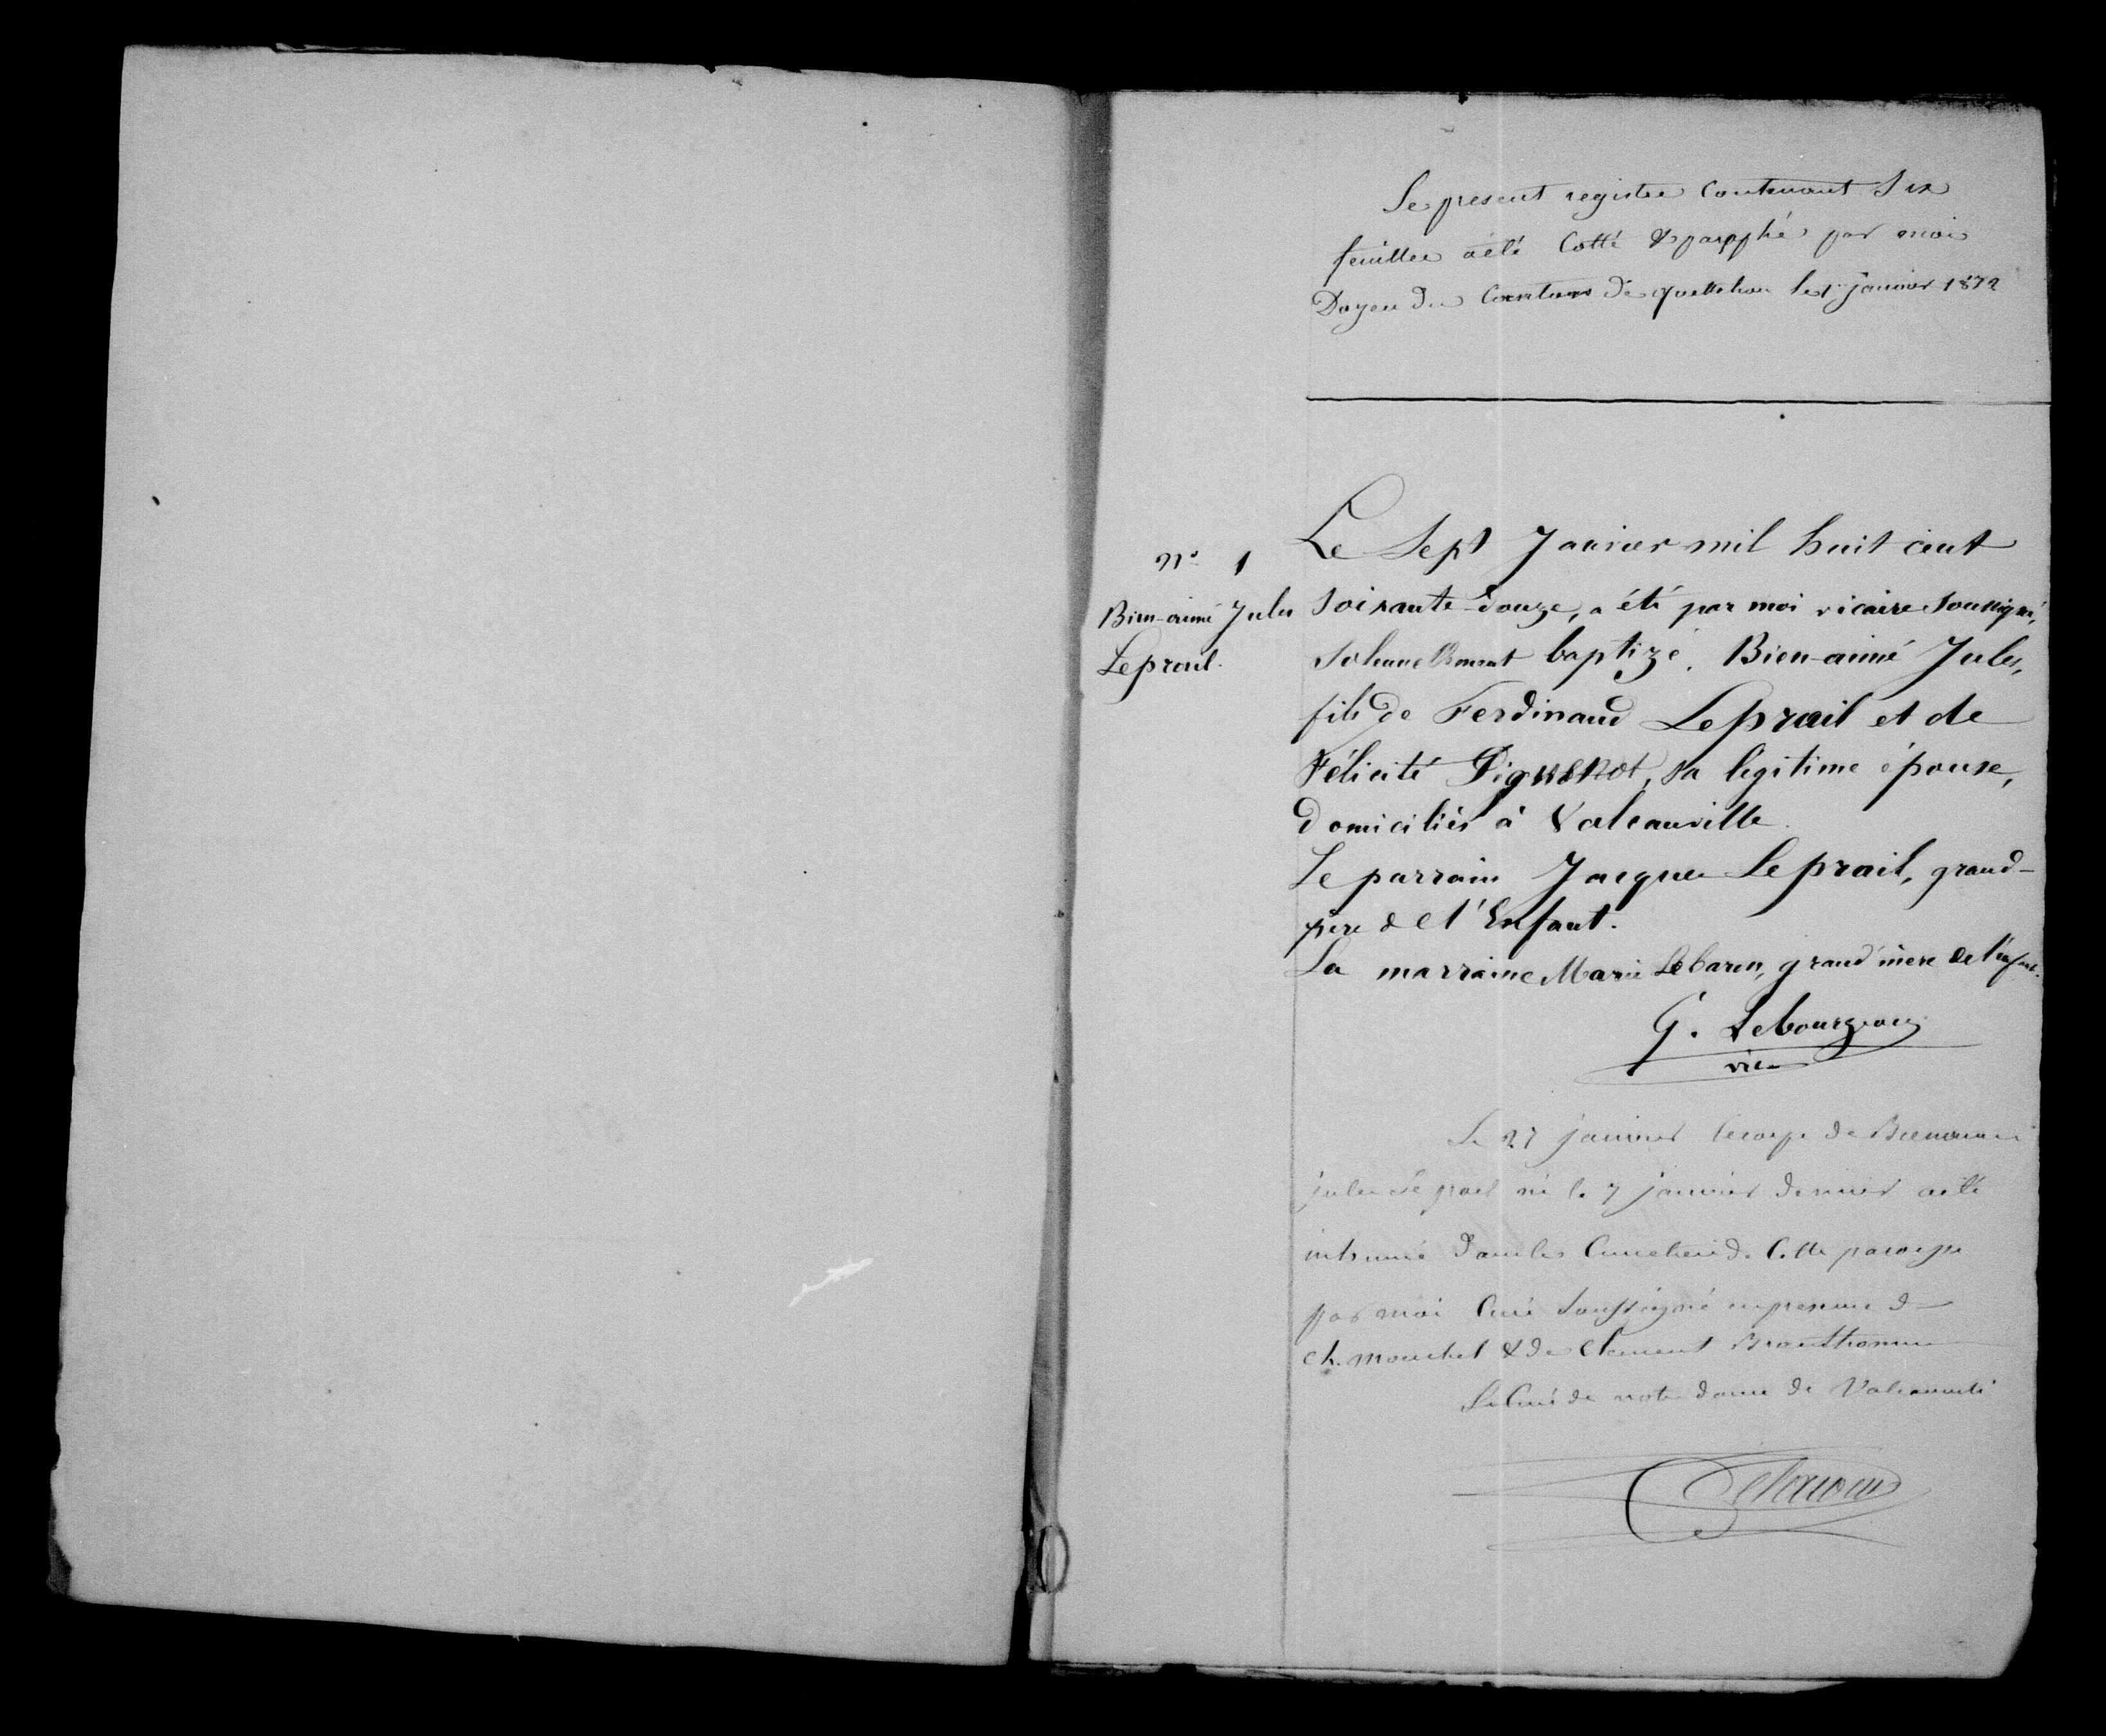 Le present registre contenant Six
feuilles a été Cotté & parapphé par moi
Doyen du Canton de quettehou le 1er janvier 1872
N° 1
Bien-aimé Jules
Leprail.
Le Sept Janvier mil huit cent
soixante-douze, a été par moi vicaire soussigné,
solennellement baptizé, Bien-aimé Jules,
fils de Ferdinand Leprail et de
Félicité Dignenot, sa légitime épouse,
domiciliés à Valcanville.
Le parrain Jacques Leprail, grand-
père de l'Enfant.
La marraine Marie Lebaron, grand'mère de l'enfant.
G. Lebourgeois
vic.
Le 27 janvier le corps de Bienaimé
jules né le 7 janvier dernier a été
inhumé dans le Cimetiere de Cette paroisse
par moi Curé Soussigné en presence de
ch. mouchel & de Clement
Le Curé de notre dame de Valcanville